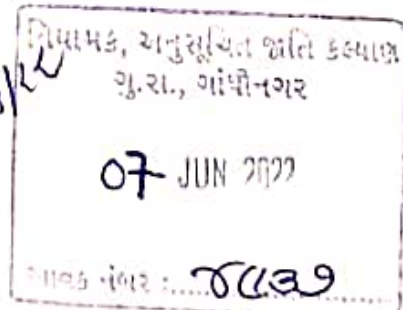 નિયામક, અનુસૂચિત જાતિ કલ્યાણ
ગુ.રા., ગાંધીનગર
07 JUN 2022
આવક નંબર :